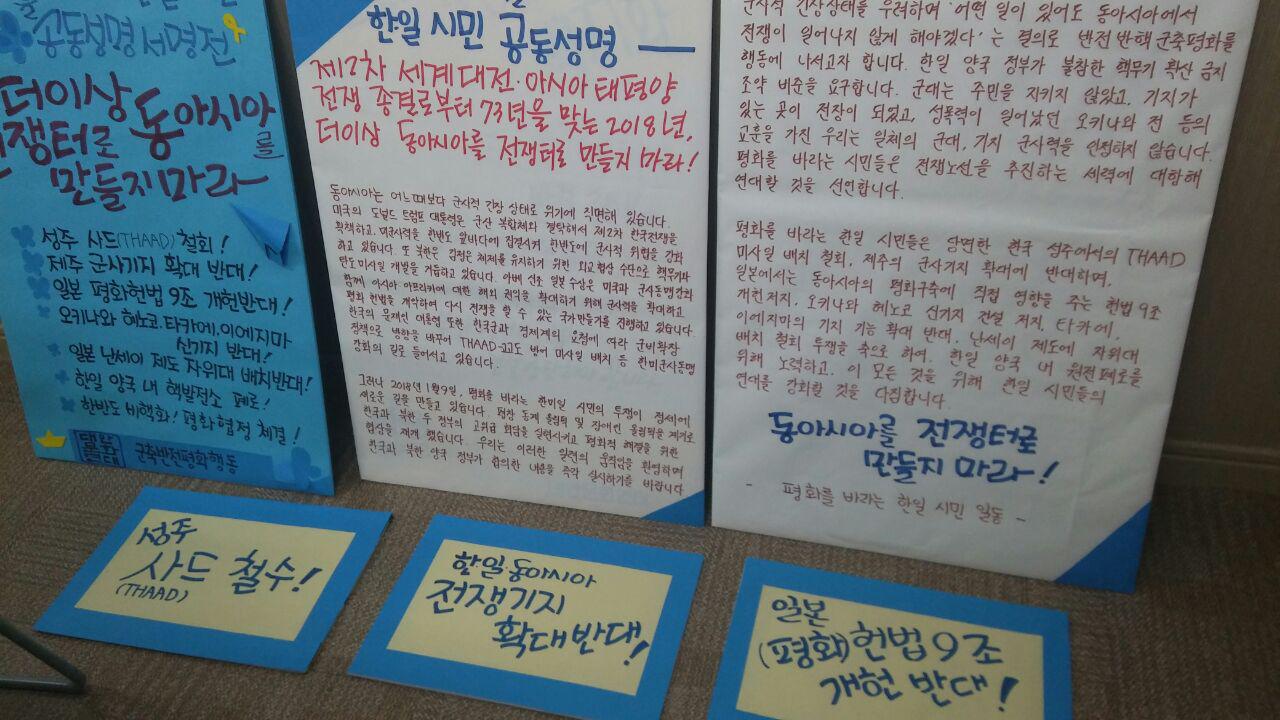 공동성명 서명전
더이상 동아시아를
전쟁터로
만들지 마라
성주 사드(THAAD) 철회!
제주 군사기지 확대 반대!
일본 평화헌법 9조 개헌반대!
오키나와 헤노코.타카에.이에지마
신기지 반대!
일본 난세이 제도 자위대 배치반대!
한일 양국 내 핵발전소 폐로!
한반도 비핵화! 평화협정 체결!
군축반전평화행동
한일 시민 공동성명
제2차 세계대전·아시아 태평양
전쟁 종결로부터 73년을 맞는 2018년,
더이상 동아시아를 전쟁터로 만들지 마라!
동아시아는 어느때보다 군사적 긴장 상태로 위기에 직면해 있습니다.
미국의 도널드 트럼프 대통령은 군산 복합체와 결탁해서 제2차 한국전쟁을
획책하고, 대군사력을 한반도 앞바다에 집결시켜 한반도에 군사적 위협을 강화
하고 있습니다. 또 북한은 김정은 체제를 유지하기 위한 외교협상 수단으로 핵무기와
탄도미사일 개발을 거듭하고 있습니다. 아베 신조 일본 수상은 미국과 군사동맹강화
함께 아시아·아프리카에 대한 해외 권익을 확대하기 위해 군사력을 확대하고
평화 헌법을 개악하여 다시 전쟁을 할 수 있는 국가만들기를 진행하고 있습니다.
한국의 문재인 대통령 또한 한국군과 경제계의 요청에 따라 군비확장
정책으로 방향을 바꾸어 THAAD-고고도 방어 미사일 배치 등 한미군사동맹
강화의 길로 들어서고 있습니다.
그러나 2018년 1월9일, 평화를 바라는 한미일 시민의 투쟁이 정세에
새로운 길을 만들고 있습니다. 평창 동계 올림픽 및 장애인 올림픽을 계기로
한국과 북한 두 정부의 고위급 회담을 실현시키고 평화적 해결을 위한
협상을 재개 했습니다. 우리는 이러한 일련의 움직임을 환영하며
한국과 북한 양국 정부가 합의한 내용을 즉각 실시하기를 바랍니다
군사적 긴장상태를 우려하며 '어떤 일이 있어도 동아시아에서
전쟁이 일어나지 않게 해야겠다'는 결의로 반전 반핵 군축평화를
행동에 나서고자 합니다. 한일 양국 정부가 불참한 핵무기 확산 금지
조약 비준을 요구합니다. 군대는 주민을 지키지 않았고, 기지가
있는 곳이 전장이 되었고, 성폭력이 일어났던 오키나와 전 등의
교훈을 가진 우리는 일체의 군대, 기지 군사력을 인정하지 않습니다.
평화를 바라는 시민들은 전쟁노선을 추진하는 세력에 대항해
연대할 것을 선언합니다.
평화를 바라는 한일 시민들은 당면한 한국 성주에서의 THAAD
미사일 배치 철회, 제주의 군사기지 확대에 반대하며,
일본에서는 동아시아의 평화구축에 직접 영향을 주는 헌법 9조
개헌저지, 오키나와 헤노코 신기지 건설 저지, 타카에,
이에지마의 기지 기능 확대 반대, 난세이 제도에 자위대
배치 철회 투쟁을 축으로 하여, 한일 양국 내 원전폐로를
위해 노력하고, 이 모든 것을 위해 한일 시민들의
연대를 강화할 것을 다짐합니다.
동아시아를 전쟁터로
만들지 마라!
- 평화를 바라는 한일 시민 일동 -
성주
사드 철수!
(THAAD)
한일·동아시아
전쟁기지
확대반대!
일본
(평화)헌법 9조
개헌 반대!